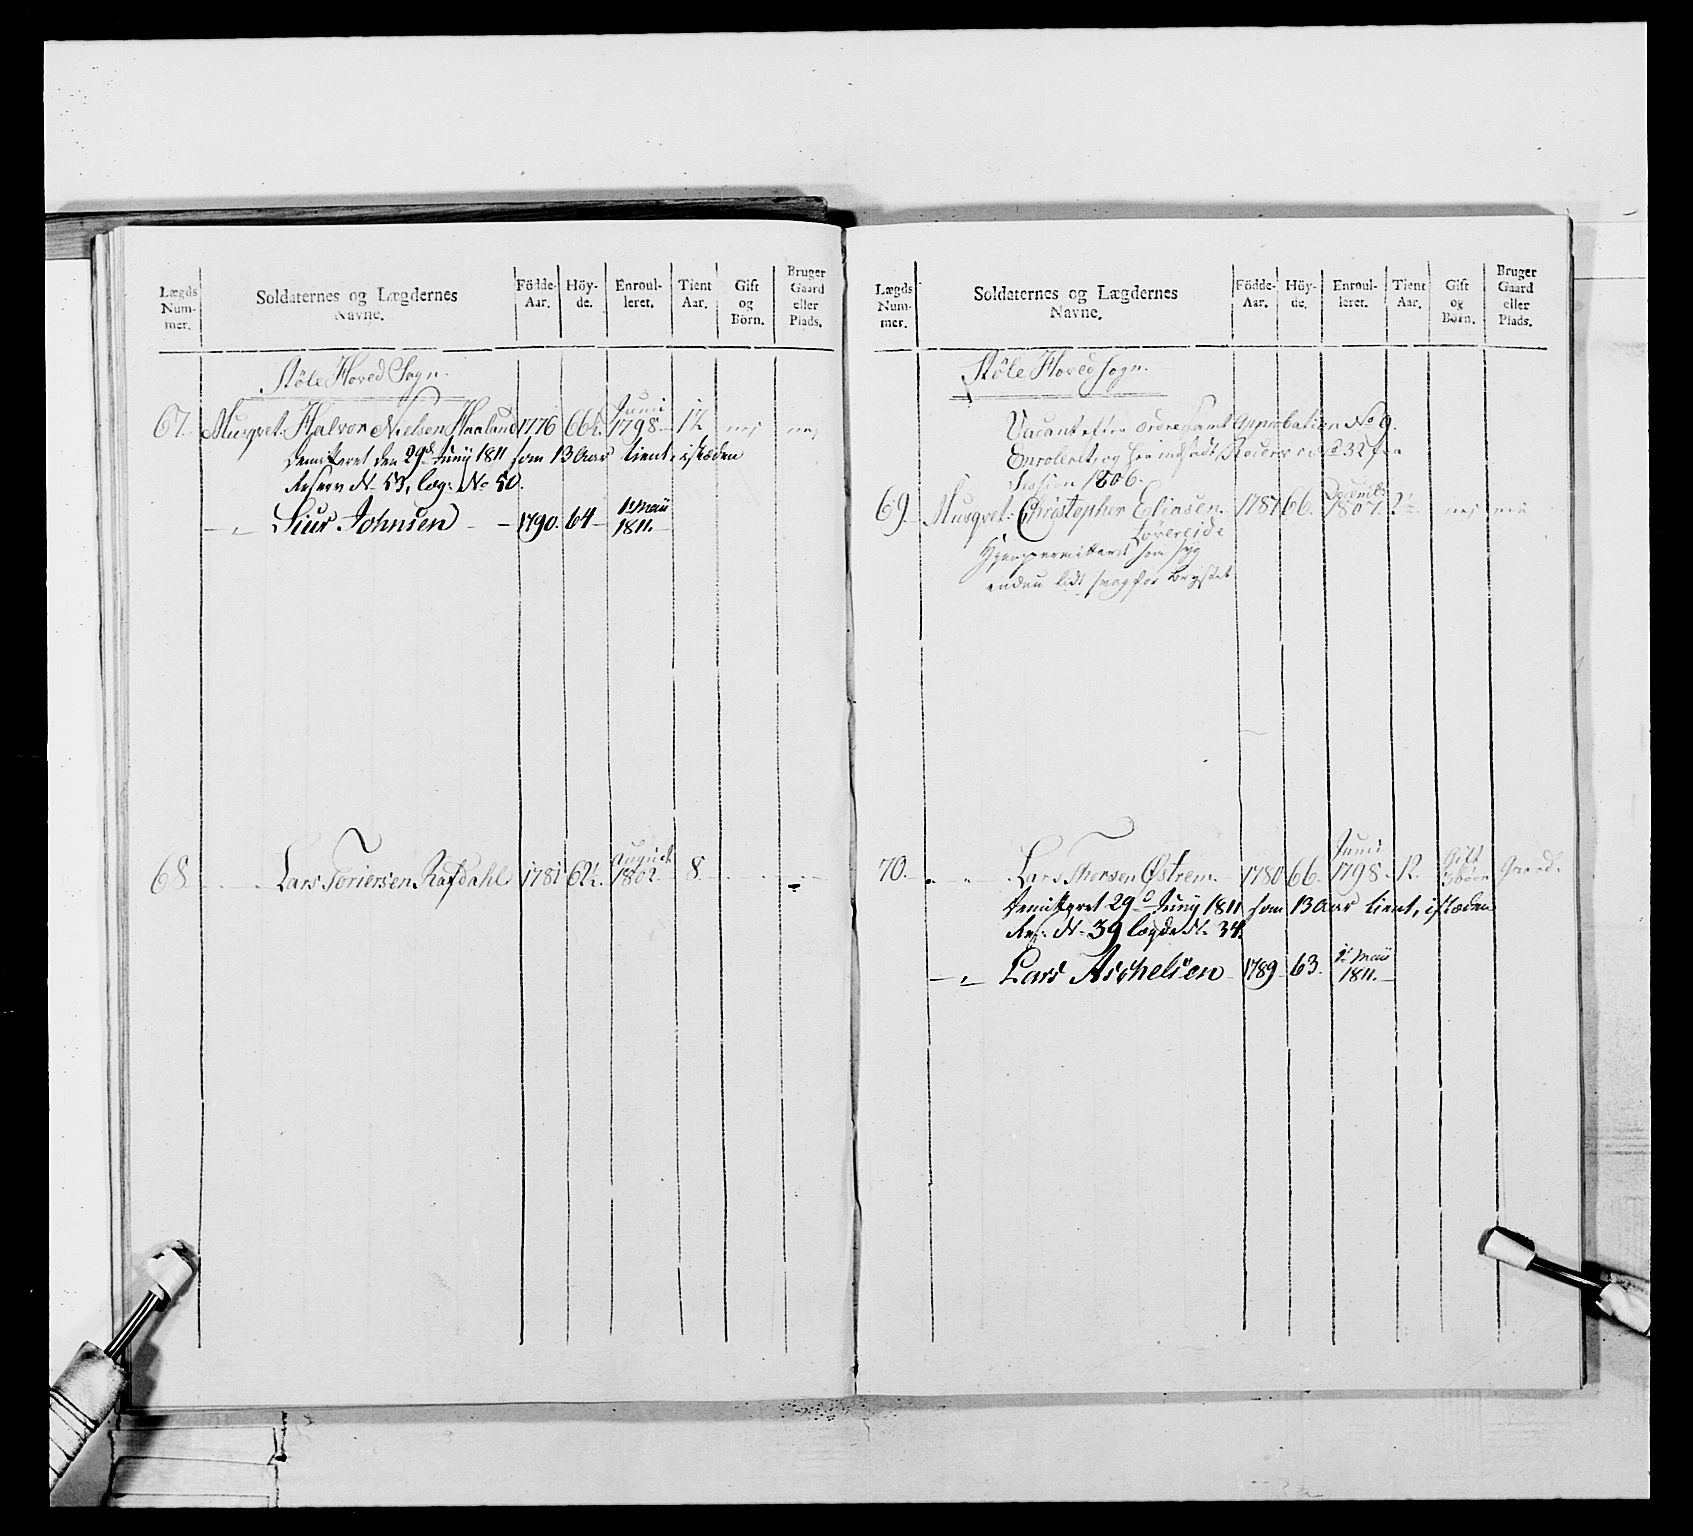 Lægds Num- mer. Soldaternes og Lægdernes Navne. Födde- Aar. Höy- de. Enroul- leret. Tient Aar. Gift og Börn. Bruger Gaard eller Plads.
Støle Hoved Sogn.
67. Musqvet: Halvor Nielsen Haaland 1776 66½. Junii 1798. 12 nej nej
Demitteret den 29de Junij 1811 som 13 Aar tient, istæden
Reserv No 53, læg: No 50.
— „ — Siur Johnsen — 1790. 64 — 1e Maii 1811.
68 Lars Toriersen Rafdahl 1781 62½. August 1802. 8.
Lægds Num- mer. Soldaternes og Lægdernes Navne. Födde- Aar. Höy- de. Enroul- leret. Tient Aar. Gift og Börn. Bruger Gaard eller Plads.
Støle Hoved Sogn.
Vacant efter Approbation No 9.
Enrolleret, og her indsadt No 32 fra
Session 1806.
69. Musqvet: Christopher Eliasen 1787 66. Decemb: 1807. 2½. nej
Løvereide
som syg
endnu lidt svag for Brystet
70. „ Lars Thorsen Østrem. 1780 66. Junii 1798. 12. Gift 3 børn Gaard.
Demitteret 29de Junij 1811 som 13 Aar tient, istæden
Res: No 39 lægde No 34.
— „ — Lars Aschelsen — 1789 — 63. 1e Maii 1811. —